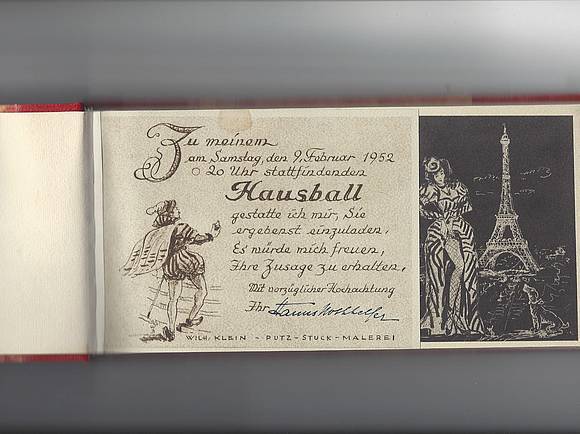 Zu meinem
am Samstag, den 9. Februar 1952
20 Uhr stattfindenden
Hausball
gestatte ich mir, Sie
ergebenst einzuladen.
Es würde mich freuen,
Ihre Zusage zu erhalten.
Mit vorzüglicher Hochachtung
Ihr
WILH. KLEIN - PUTZ - STUCK - MALEREI